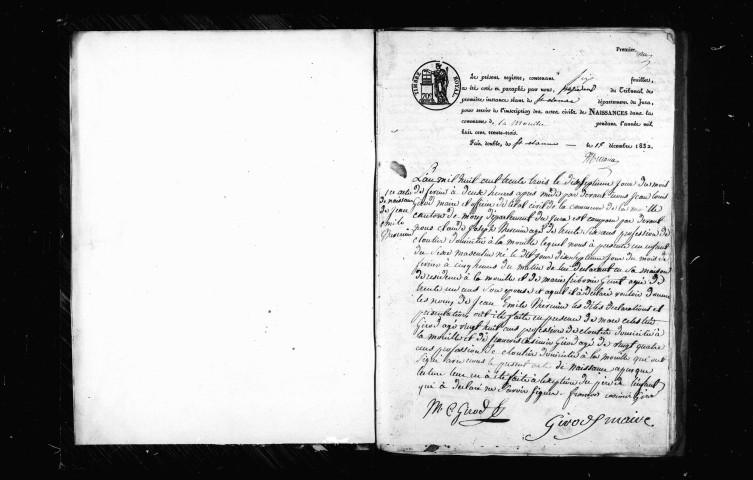 Premier
TIMBRE ROYAL
Le présent registre, contenant six feuillets,
a été coté et paraphé par nous, président du Tribunal de
première instance séant de St Claude département du Jura,
pour servir de l'inscription des actes civils de NAISSANCES dans la
commune de la Mouille pendant l'année mil
huit cent trente-trois.
Fait, double, de St Claude le 15 décembre 1832.
L'an mil huit cent trente trois le dix septieme jour du mois
de fevrier à deux heures apres midi par devant nous Jean Louis
Girod maire et officier de l'état civil de la commune de la Mouille
canton de morez département du jura est comparu par devant
nous claude joseph Mercier agé de trente six ans profession de
cloutier domicilié à la mouille lequel nous a présenté un enfant
du sexe masculin né le dit jour dix septieme jour du mois de
fevrier à cinq heures du matin de lui déclarant en sa maison
de residence à la mouille et de marie Girod agé de
trente un ans son epouse et auquel il a déclaré vouloir donner
les noms de Jean Emile Mercier les dites déclarations et
présentation ont été faite en presence de marc celestin
Girod agé vingt huit ans profession de cloutier domicilié à
la mouille et de françois casimir Girod agé de vingt quatre
ans profession de cloutier domicilié à la mouille qui ont
signé avec nous le present acte de naissance apres que
lecture leur en a été faite à l'exception du pere de l'enfant
qui à déclaré ne savoir signer. françois casimir Girod
1er acte
de naissance
de jean
emile
Mercier
M C Girod
Girod maire